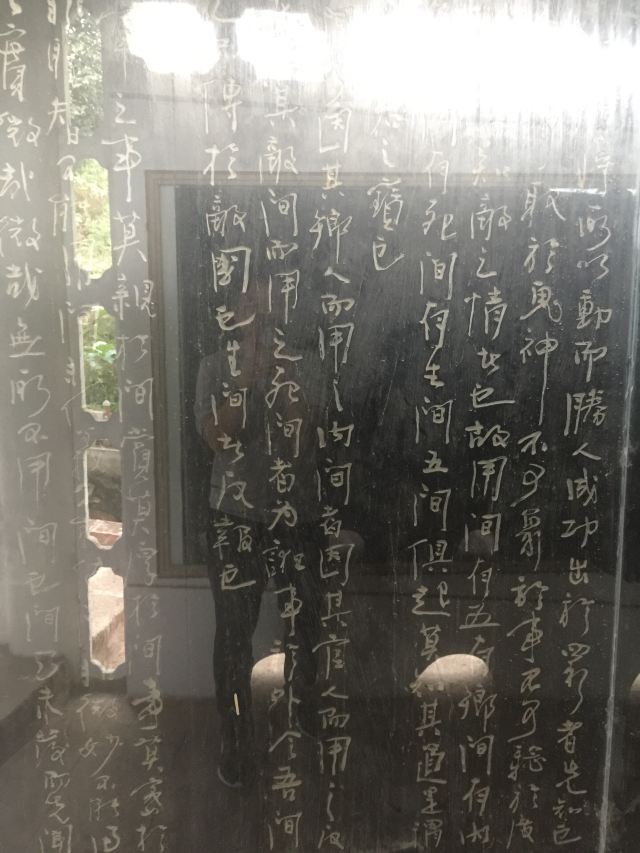 所以動而勝人成功出於眾者先知也
取於鬼神不可象於事不可驗於度
知敵之情者也故用間有五有鄉間有內
間有死間有生間五間俱起莫知其道是謂
之寶也
因其鄉人而用之內間者因其官人而用之反
其敵間而用之死間者為誑事於外令吾間
傳於敵國也生間者反報也
之事莫親於間賞莫厚於間事莫密於
智不能用間非微妙不能得
之實微哉微哉無所不用間也間事未發而先聞